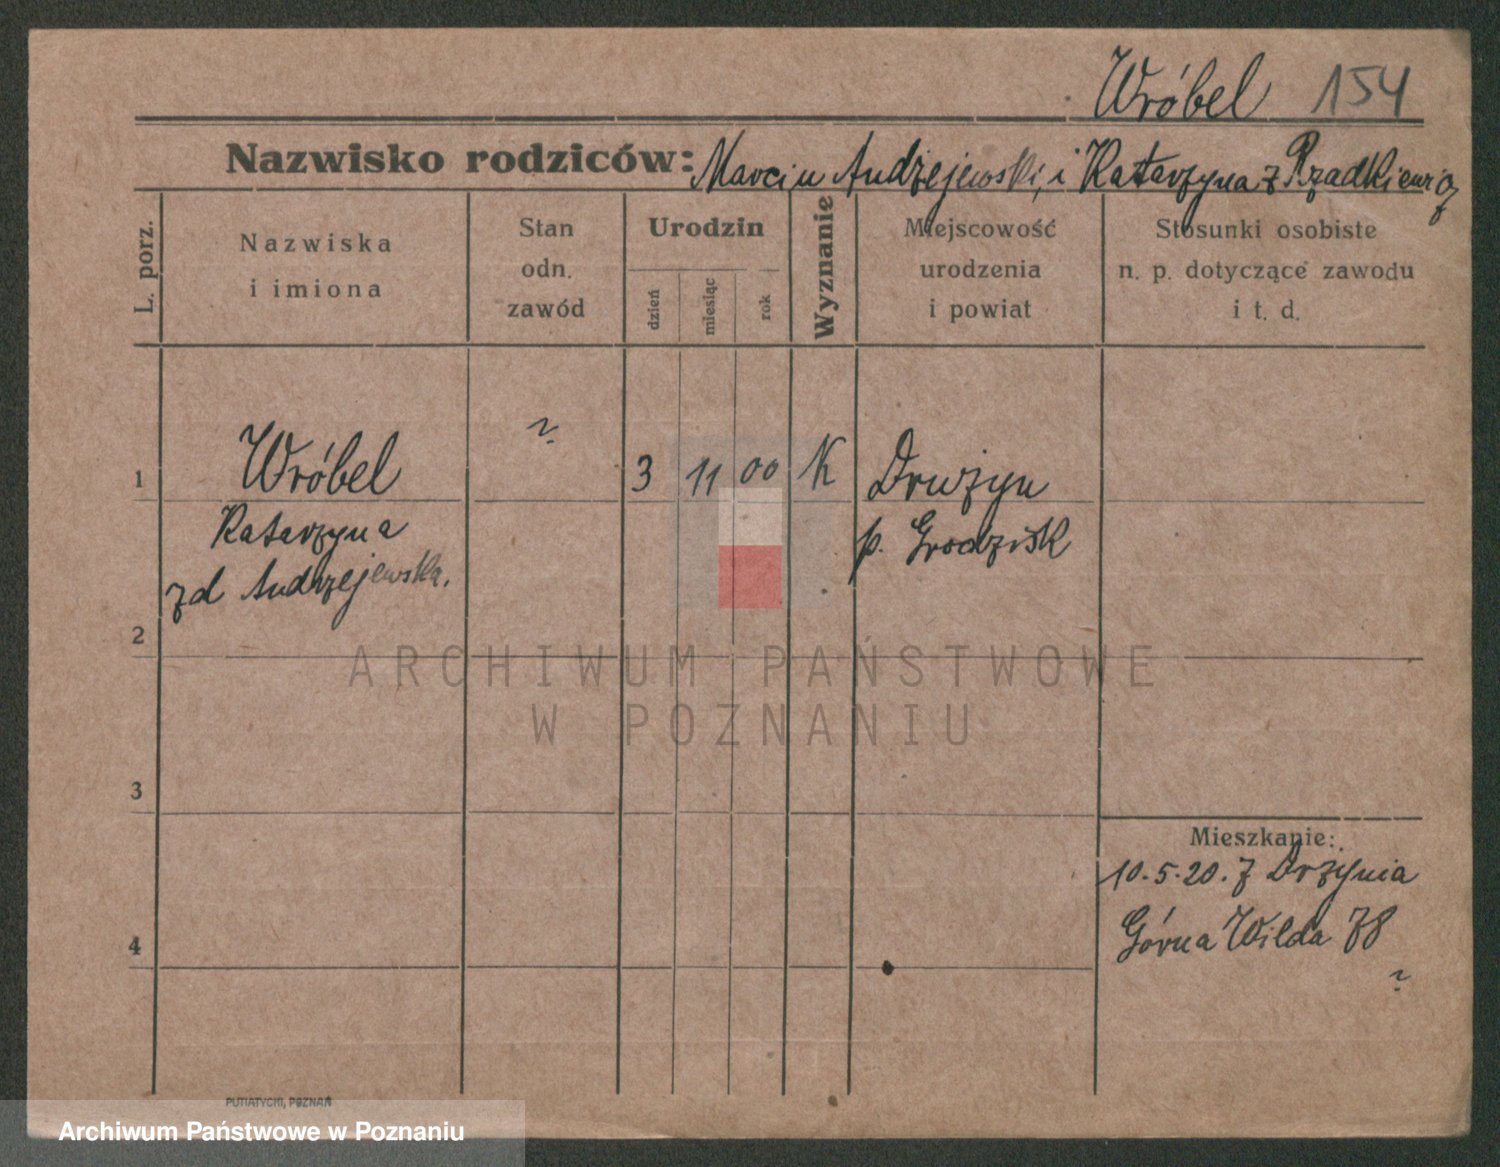 Wróbel 154
Nazwisko rodziców: Marcin Andrzejewski, i Katarzyna z Rzadkiewicz
L. porz.
Nazwiska
i imiona
Stan
odn.
zawód
Urodzin
dzień
miesiąc
rok
Wyznanie
Miejscowość
urodzenia
i powiat
Stosunki osobiste
n. p. dotyczące zawodu
i t. d.
1 Wróbel ? 3 11 00 K Drużyn
Katarzyna p. Grodzisk
zd Andrzejewska.
2
ARCHIWUM PAŃSTWOWE
W POZNANIU
3
Mieszkanie:
10.5.20. z Drzynia
4 Górna Wilda 78
?
PUTIATYCKI, POZNAŃ
Archiwum Państwowe w Poznaniu